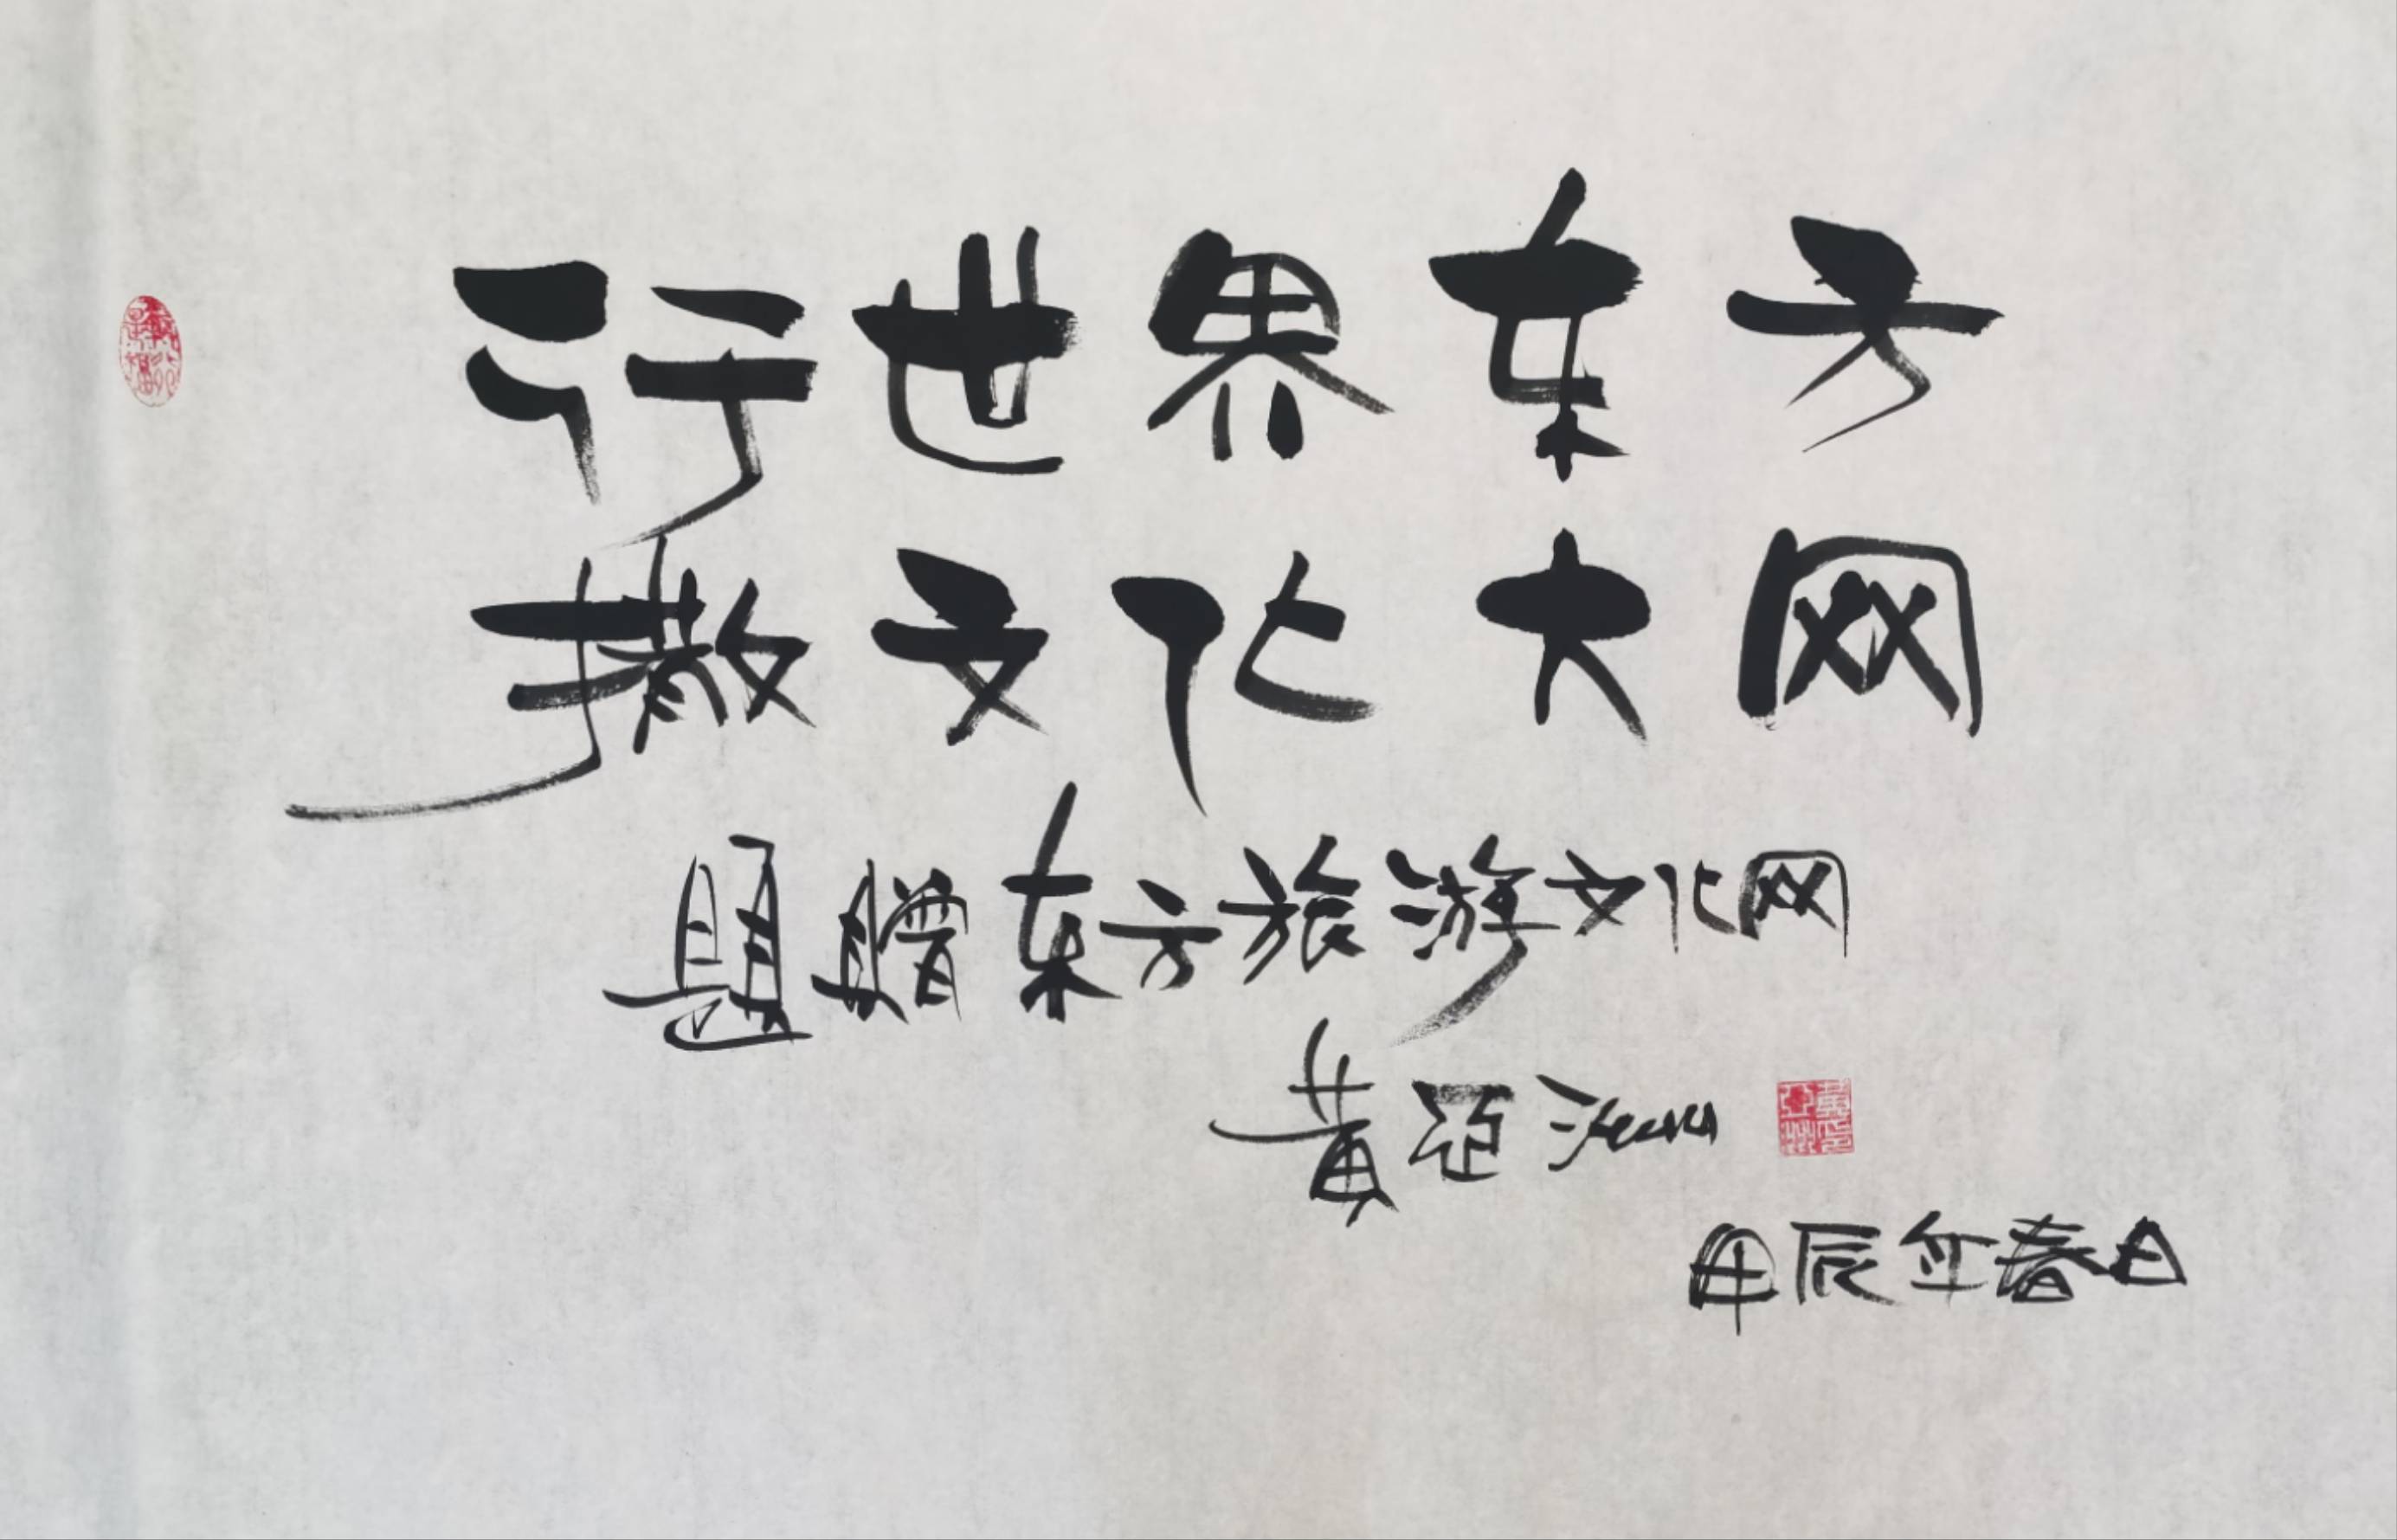 行世界东方
撒文化大网
题赠东方旅游文化网
黄亚洲
甲辰年春日